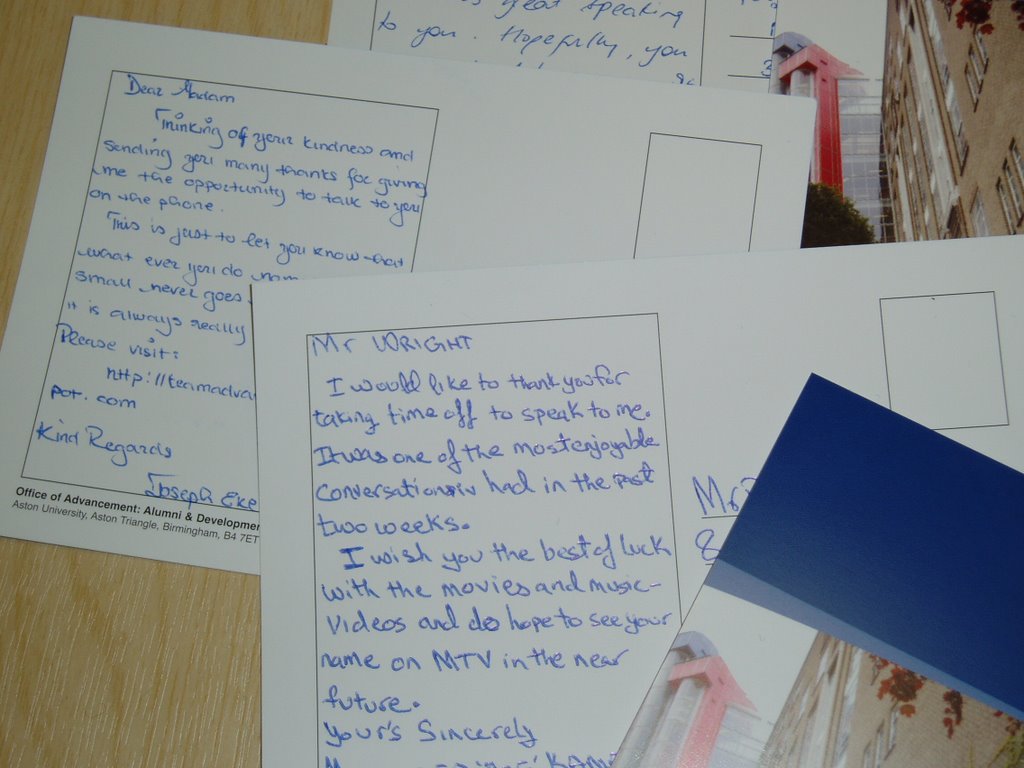 great speaking
to you. Hopefully, you
Dear Madam
Thinking of your kindness and
sending you many thanks for giving
me the opportunity to talk to you
on the phone.
This is just to let you know that
what ever you do
small never goes
it is always really
Please visit:
http://teamadva
pot.com
Kind Regards
Joseph Eke
Office of Advancement: Alumni & Developmen
Aston University, Aston Triangle, Birmingham, B4 7ET
Mr WRIGHT
I would like to thank you for
taking time off to speak to me.
It was one of the most enjoyable
conversations iv had in the past
two weeks.
I wish you the best of luck
with the movies and music-
videos and do hope to see your
name on MTV in the near
future.
Your's Sincerely
Mr
8